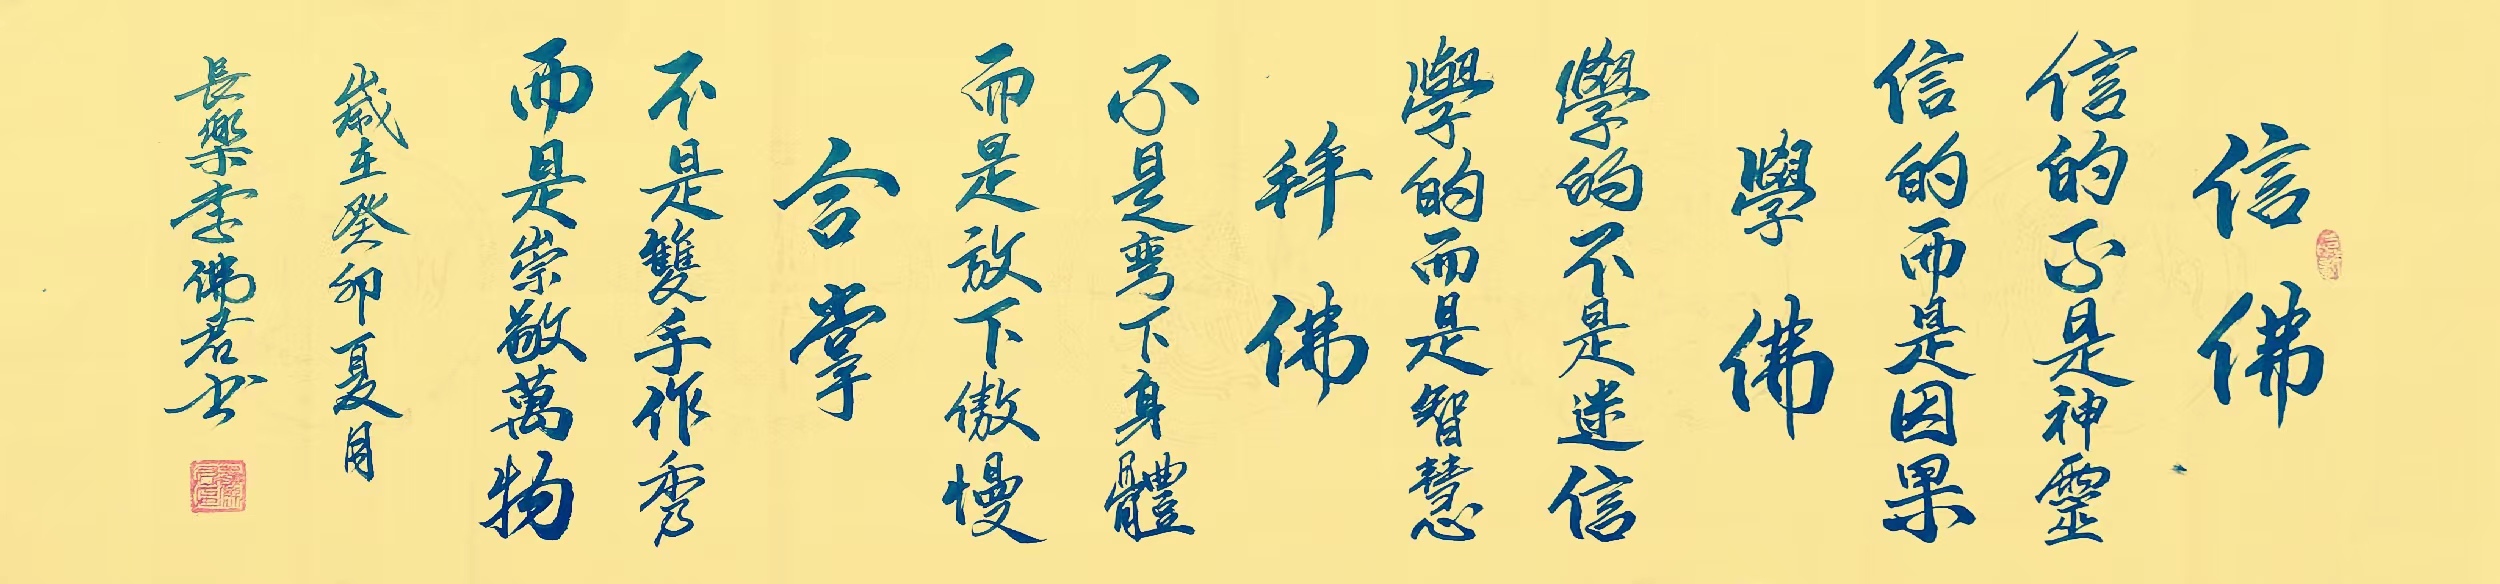 信佛
信的不是神靈
信的而是因果
學佛
學的不是迷信
學的而是智慧
拜佛
不是弯下身體
而是放下傲慢
合掌
不是雙手作秀
而是崇敬萬物
歲在癸卯夏月
長樂李佛君书